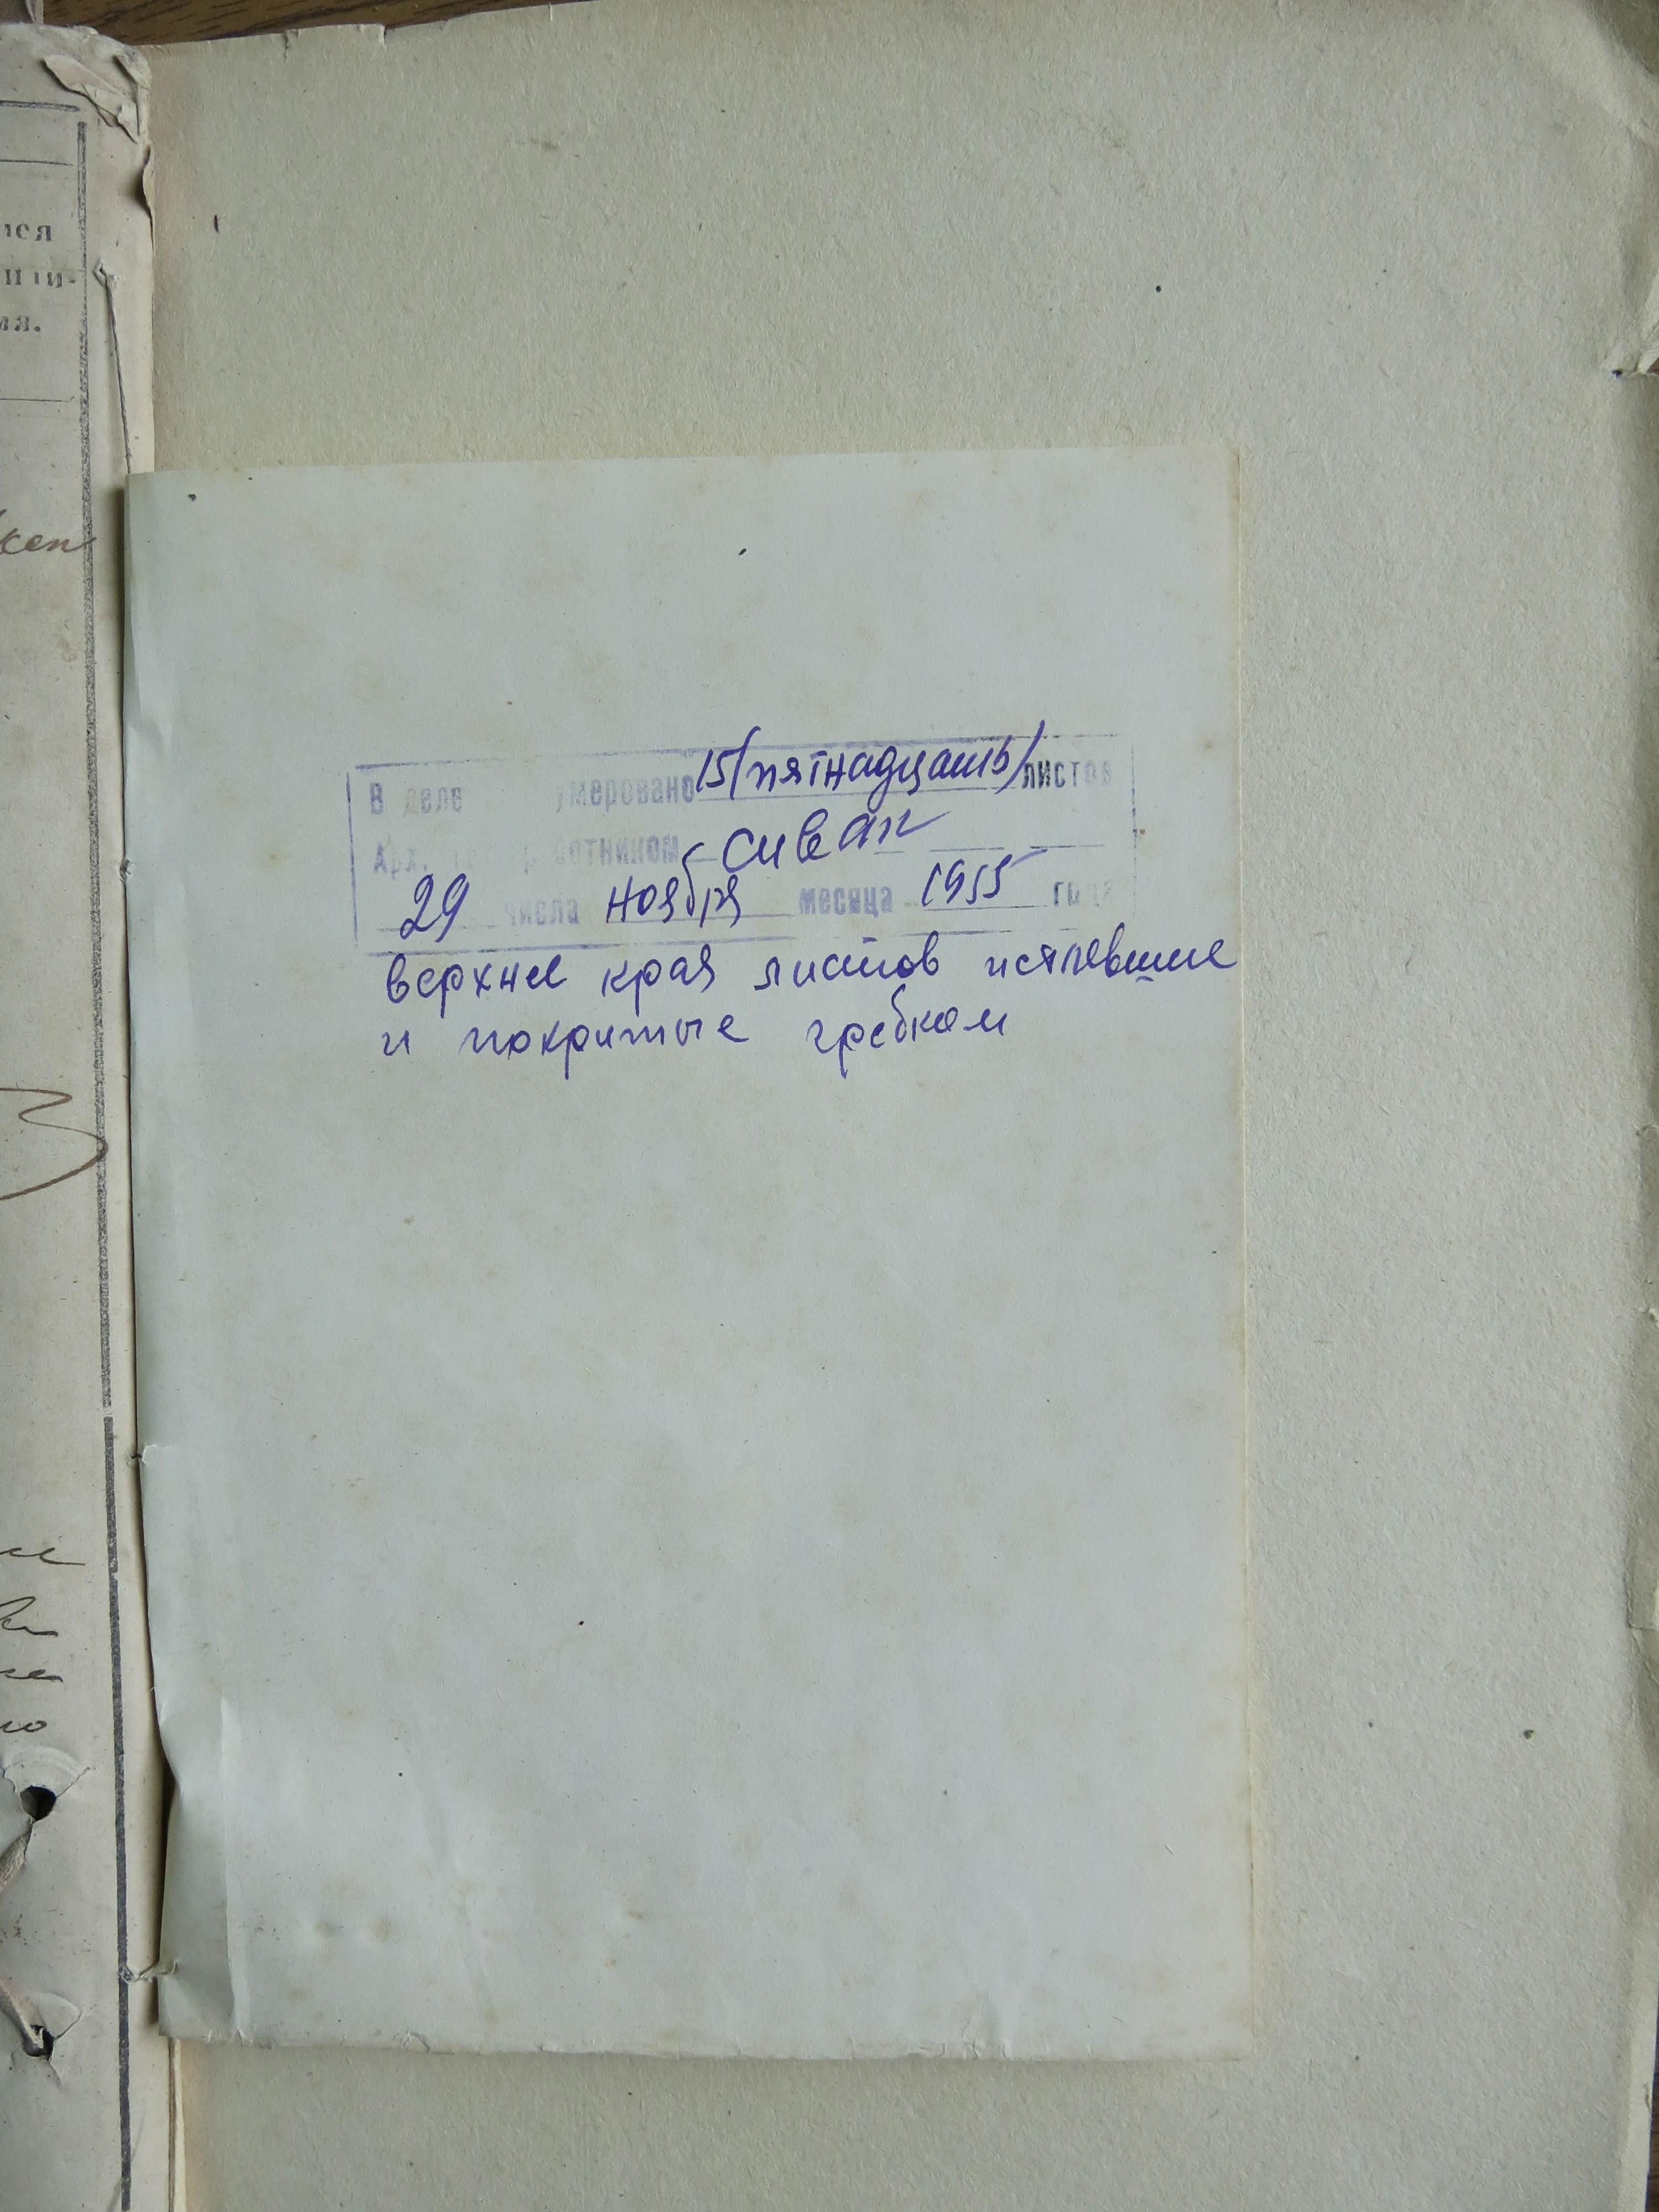 ися
ия.
В деле умеровано 15/пятнадцать/листов
Арх. ботником Сивак
29 числа ноября месяца 1955 года
верхнее края листов истлевшие
и покритые гребком